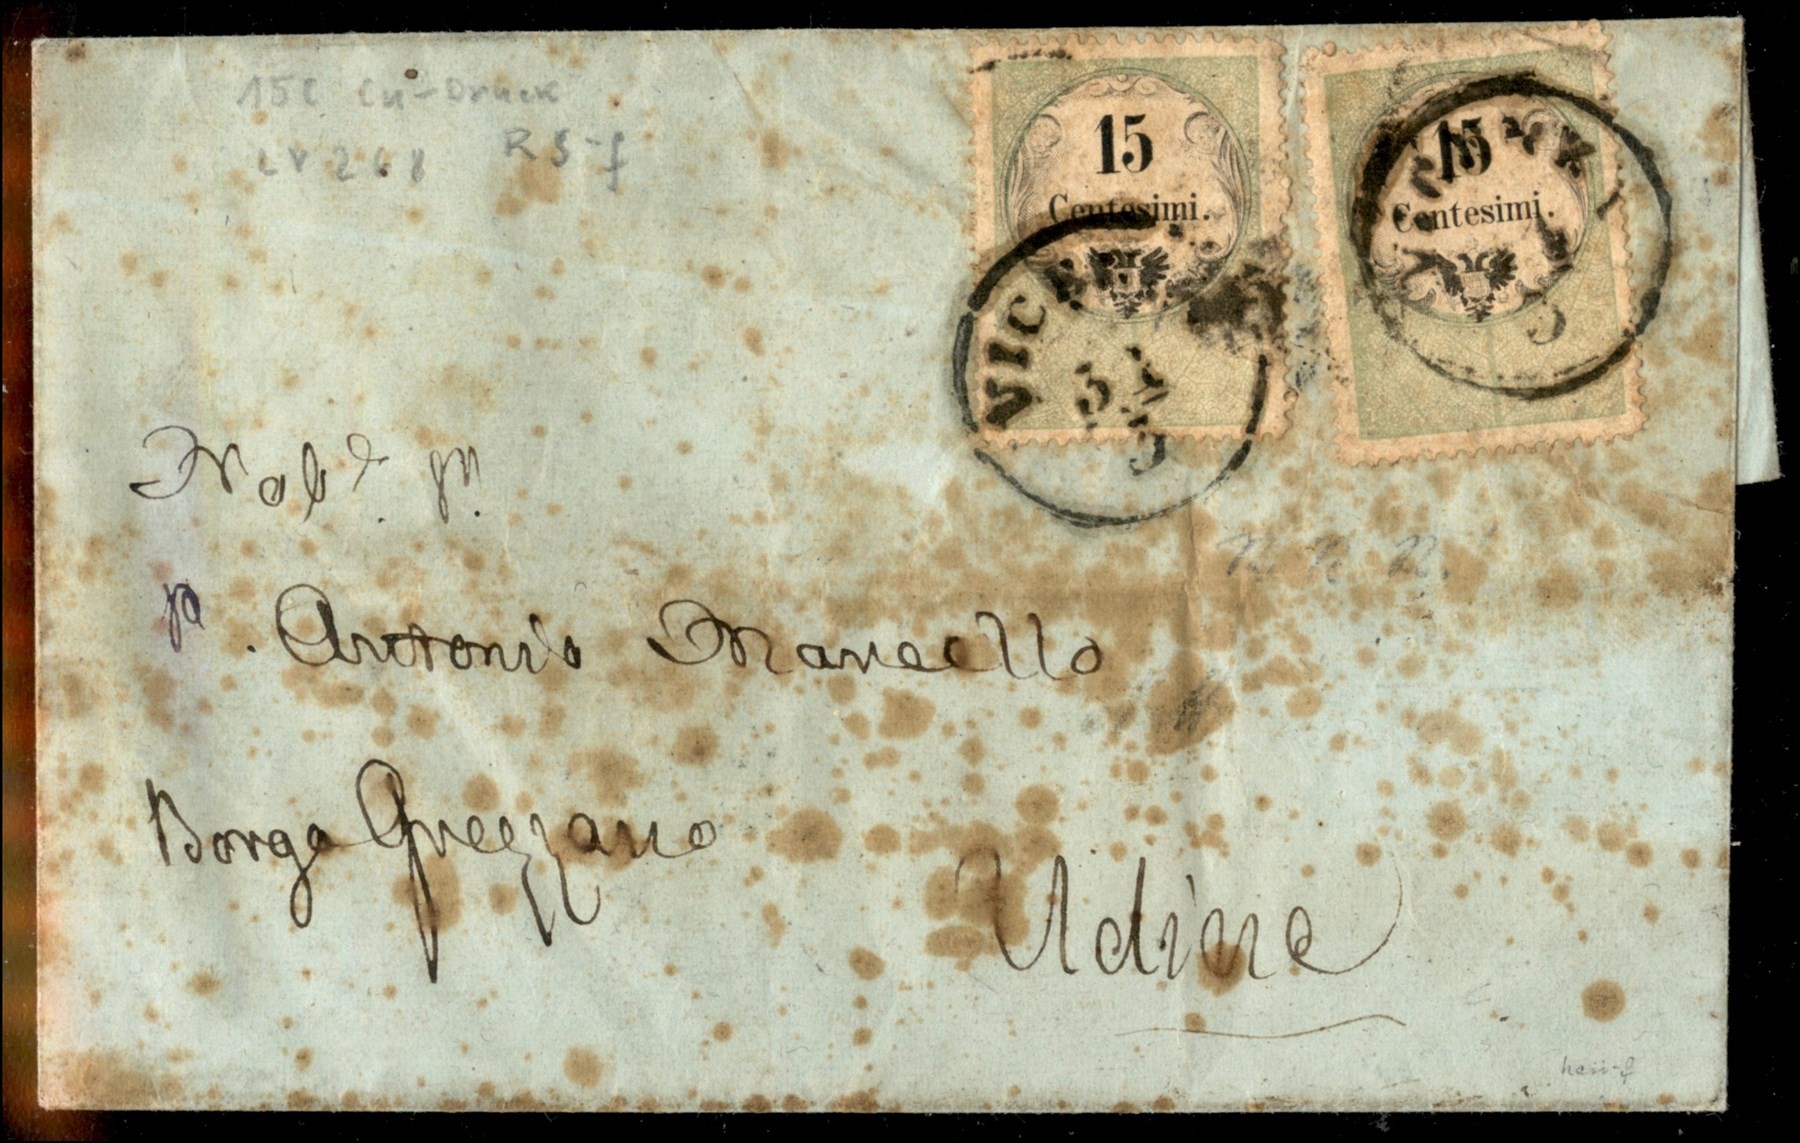 15c Cu-Druck
LV 268 RS-f
15
Centesimi.
15
Centesimi.
VICE
3
Nob.e
Antonio Marcello
Borgo Grezzano
Udine